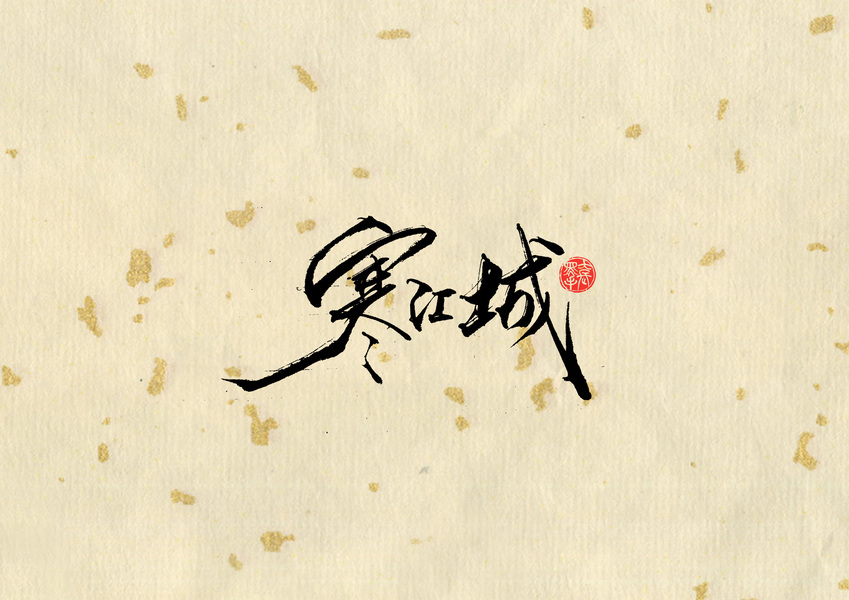 寒江城